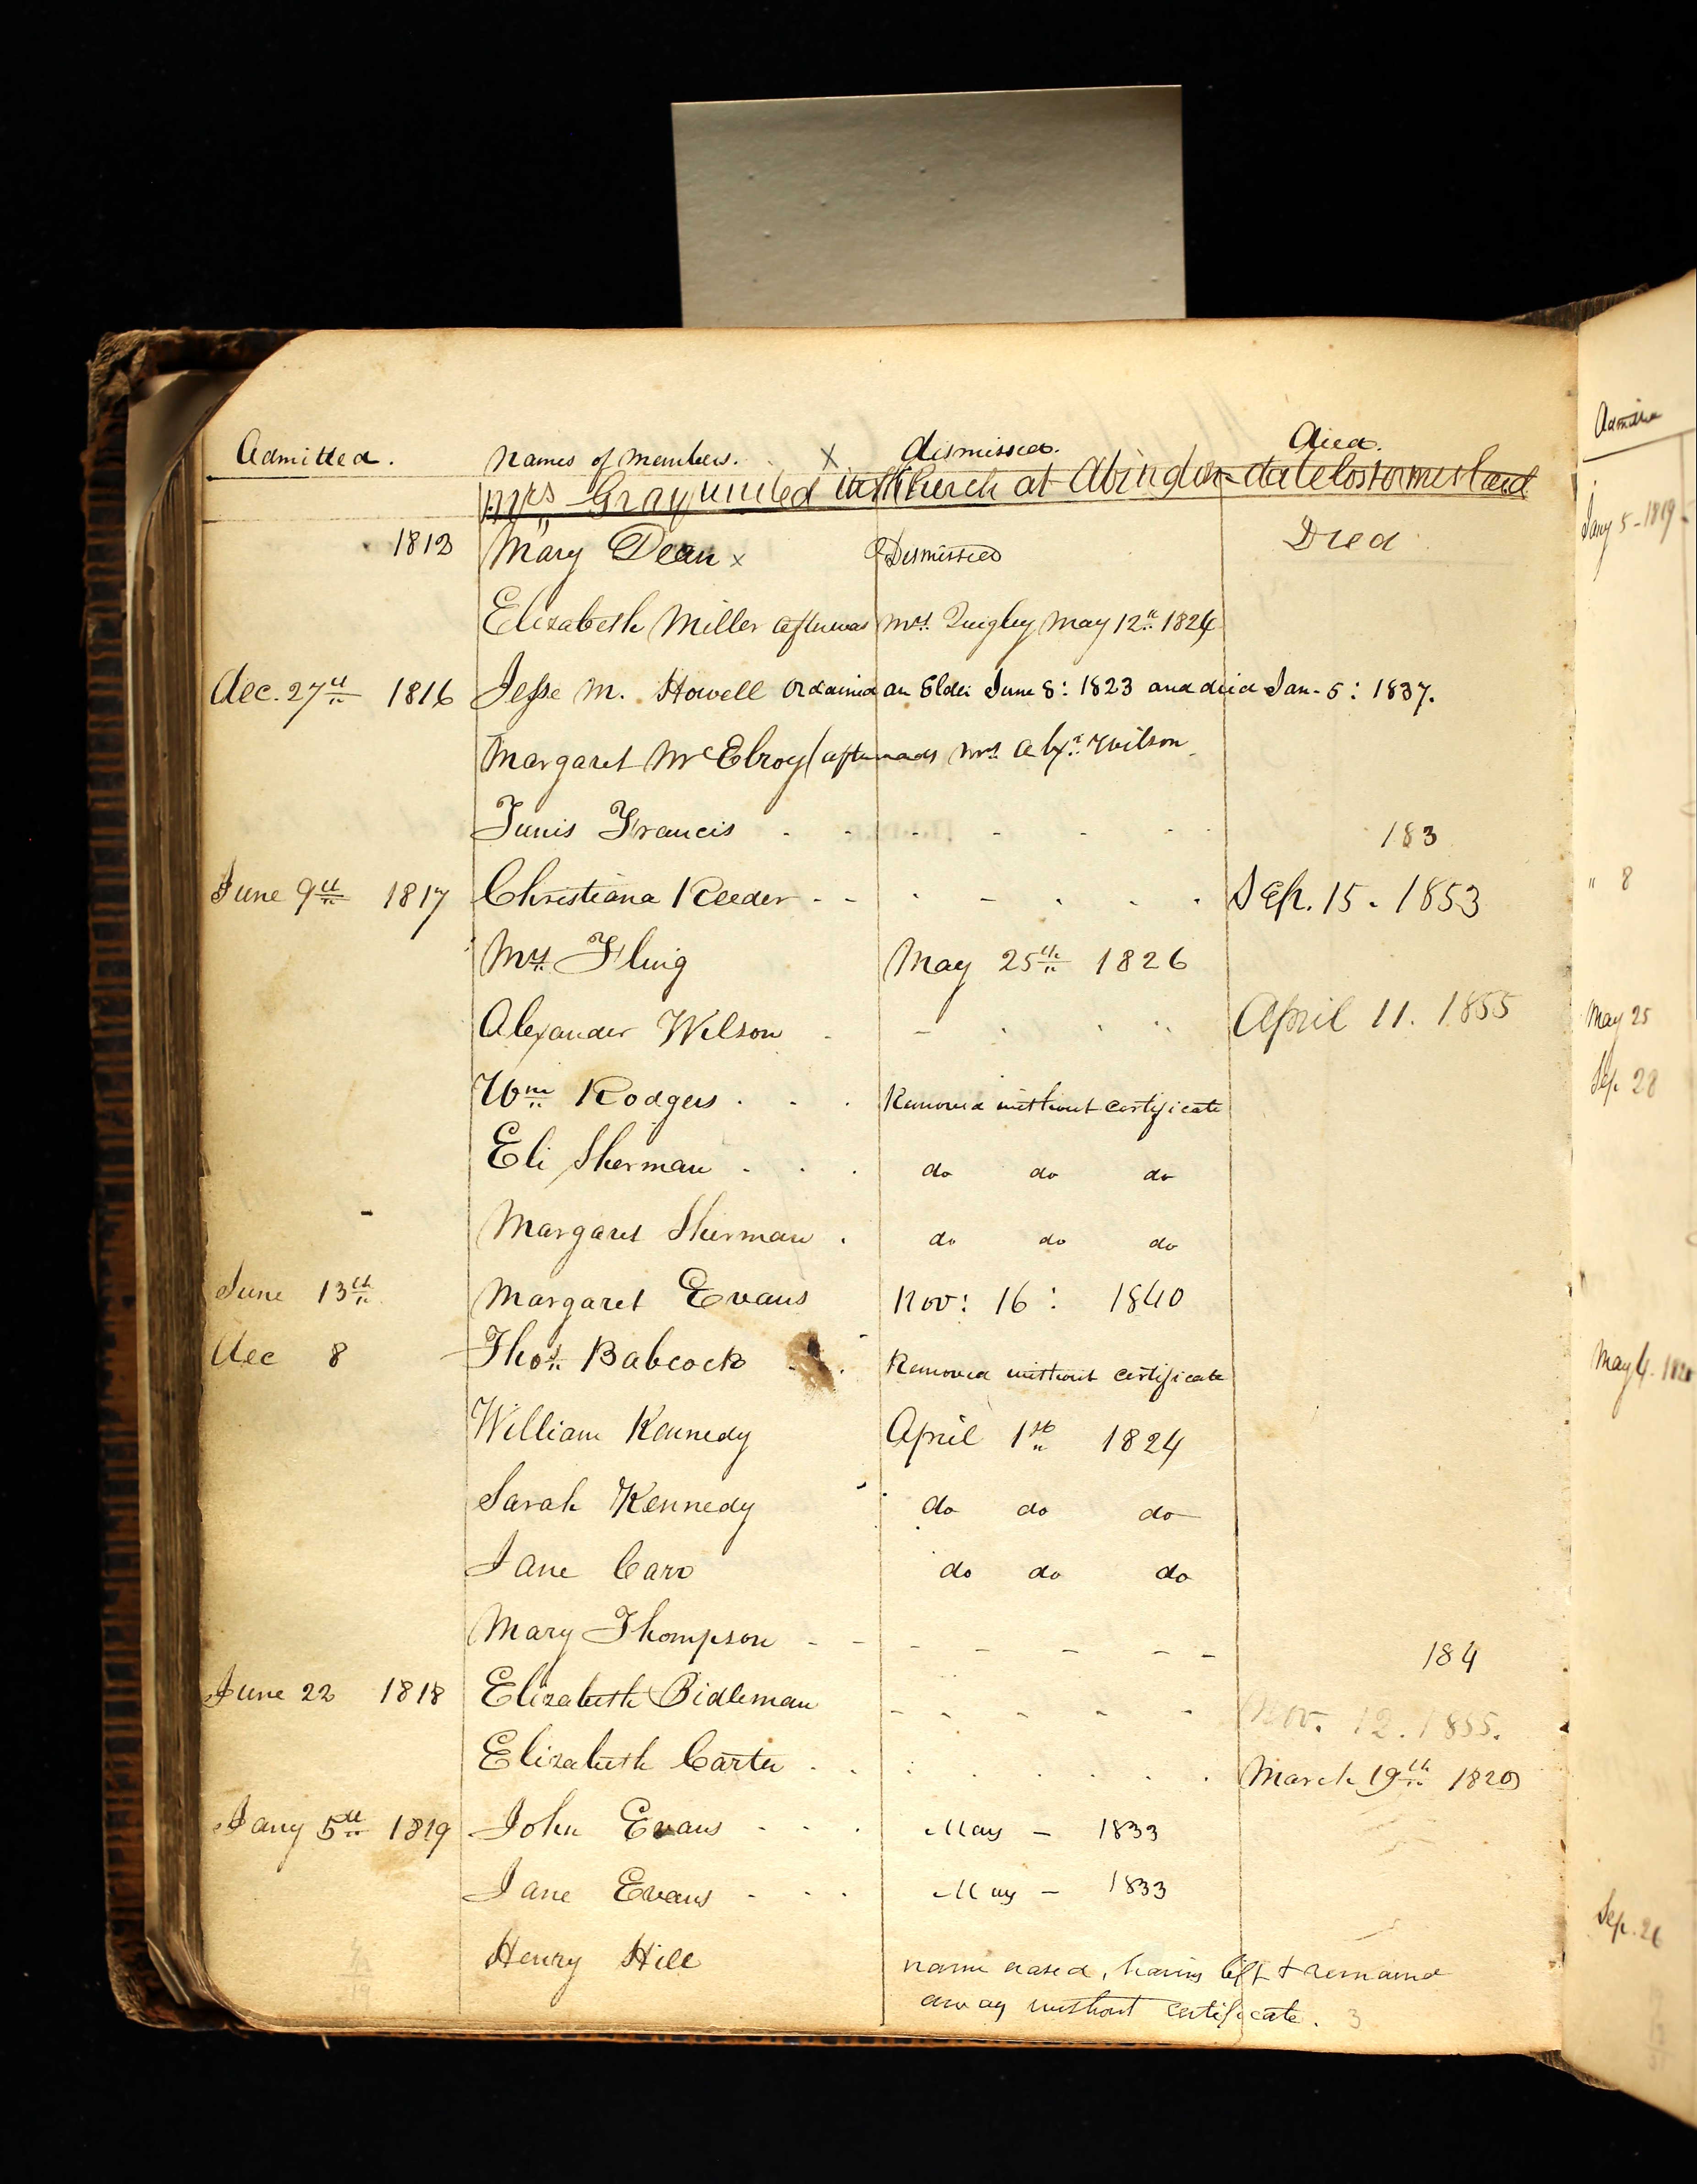 Admitted. Names of Members. X Dismissed. Died.
Mrs Gray united with Church at Abingdon - date lost or mislaid
1813 Mary Dean x Dismissed Died
Elizabeth Miller afterwas Mrs. Quigley May 12th 1824
Dec. 27th 1816 Jesse M. Howell Ordained an Elder June 8: 1823 and died Jan. 5: 1837.
Margaret McElroy (afterwards Mrs. Alexr. Wilson
Tunis Francis - - - - - 183
June 9th 1817 Christiana Reeder - - - - Sep. 15. 1853
Mrs. Fling May 25th 1826
Alexander Wilson - - - - April 11. 1855
Wm Rodgers . . . Removed without certificate
Eli Sherman . . . do do do
Margaret Sherman . do do do
June 13th Margaret Evans Nov: 16: 1840
Dec 8 Thos. Babcock Removed without certificate
William Kennedy April 1st 1824
Sarah Kennedy do do do
Jane Carr do do do
Mary Thompson - - - - - - 184
June 22 1818 Elizabeth Bidleman - - - - - Nov. 12. 1855.
Elizabeth Carter . . . . . March 19th 1820
Jany 5th 1819 John Evans - - - May - 1833
Jane Evans - - - May - 1833
Henry Hill name erased, having left & remained
away without certificate. 3
Admitted
Jany 5 - 1819
" 8
May 25
Sep. 28
May 4. 1820
Sep. 26